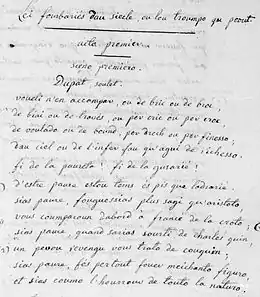 Lei fourbariés dau siecle, ou lou troumpo qu poout
acto premier
sieno premiero.
Dupat soulet.
voueli n'en accampar, ou de bric ou de brac,
de biai ou de travès, ou per eric ou per crac
de voulado ou de bound, per drech ou per finesso,
dau ciel ou de l'infer fau qu'agui de richesso,
fi de la paureta! fi de la gusarié!
d'estre paure estou tems és pis que ladrarié.
sias paure, fouguessias plus sagi qu'aristoto
vous coumparoun d'abord à francé de la croto;
sias paure, quand sarias sourti de charles quin
un pevou revengu vous trato de couquin;
sias paure, fés pertout fouer meichanto figuro,
et sias coumo l'hourrour de touto la naturo,